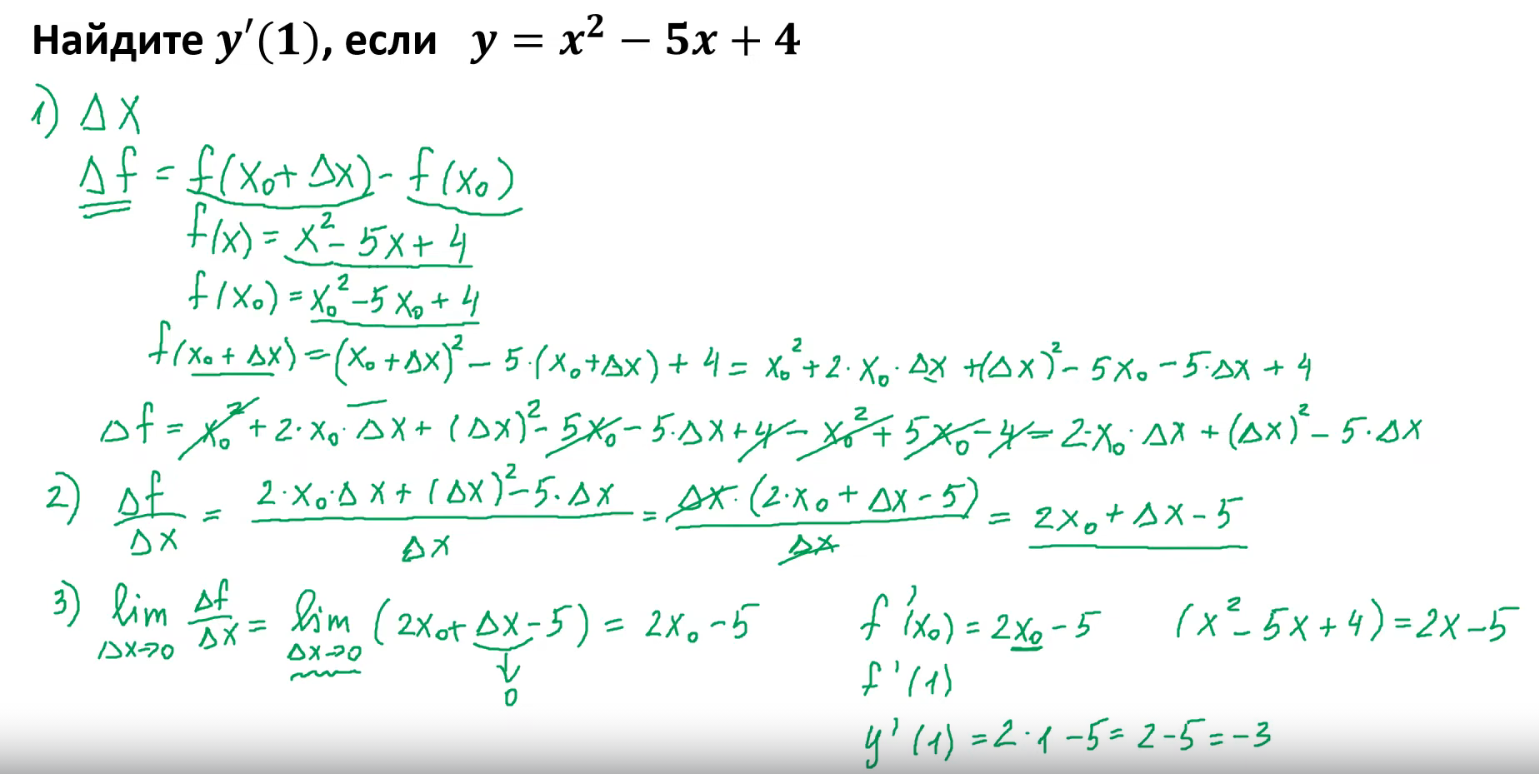 Найдите y′(1), если y = x² − 5x + 4
1) Δx
Δf = f(x₀ + Δx) - f(x₀)
f(x) = x² - 5x + 4
f(x₀) = x₀² - 5x₀ + 4
f(x₀ + Δx) = (x₀ + Δx)² - 5·(x₀ + Δx) + 4 = x₀² + 2·x₀·Δx + (Δx)² - 5x₀ - 5·Δx + 4
Δf = x₀² + 2·x₀·Δx + (Δx)² - 5x₀ - 5·Δx + 4 - x₀² + 5x₀ - 4 = 2·x₀·Δx + (Δx)² - 5·Δx
2) Δf/Δx = (2·x₀·Δx + (Δx)² - 5·Δx)/Δx = Δx·(2·x₀ + Δx - 5)/Δx = 2x₀ + Δx - 5
3) lim Δx→0 Δf/Δx = lim Δx→0 (2x₀ + Δx - 5) = 2x₀ - 5 f′(x₀) = 2x₀ - 5 (x² - 5x + 4) = 2x - 5
0 f′(1)
y′(1) = 2·1 - 5 = 2 - 5 = -3